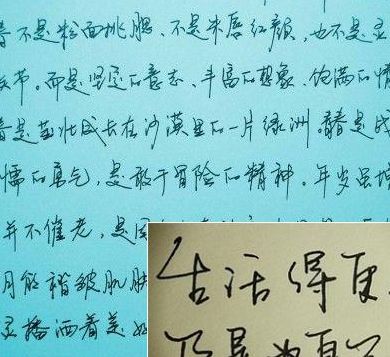 春不是粉面桃腮、不是朱唇红颜，也不是灵
关节。而是坚定的意志、丰富的想象、饱满的情
春是茁壮成长在沙漠里的一片绿洲。青春是战
懦的勇气，是敢于冒险的精神。年岁虽增
并不催老，是因
月能褶皱肌肤
灵播洒着美
生活得更